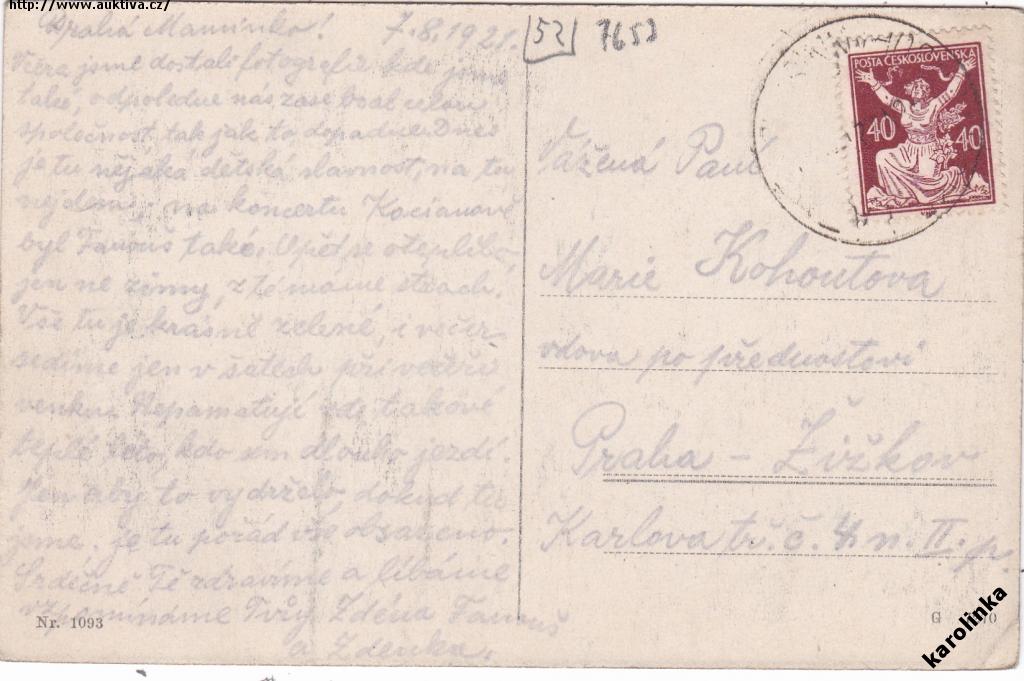 http://www.auktiva.cz/
Drahá Maminko! 7.8.1921.
Včera jsme dostali fotografie kde jsme
také, odpoledne nás zase bral celou
společnost tak jak to dopadne. Dnes
je tu nějaká dětská slavnost, na tu
nejdem, na koncertu Kocianově
byl Fanouš také. Opět se oteplilo
jen ne zimy, z té máme strach.
Vše tu je krásně zelené, i večer
sedíme jen v šatech při večeři
venku. Nepamatují zde takové
teplé léto, kdo sem dlouho jezdí.
Jen aby to vydrželo dokud tu
jsme. Je tu pořád vše obsazeno.
Srdečně Tě zdravíme a líbáme
vzpomínáme Tvůj Zdéna Fanouš
a Zdenka.
Nr. 1093
52 7653
POŠTA ČESKOSLOVENSKÁ
40 40
Vážená Paní
Marie Kohoutova
vdova po přednostovi
Praha – Žižkov
Karlova tř. č. 4 n. II. p.
G
karolinka